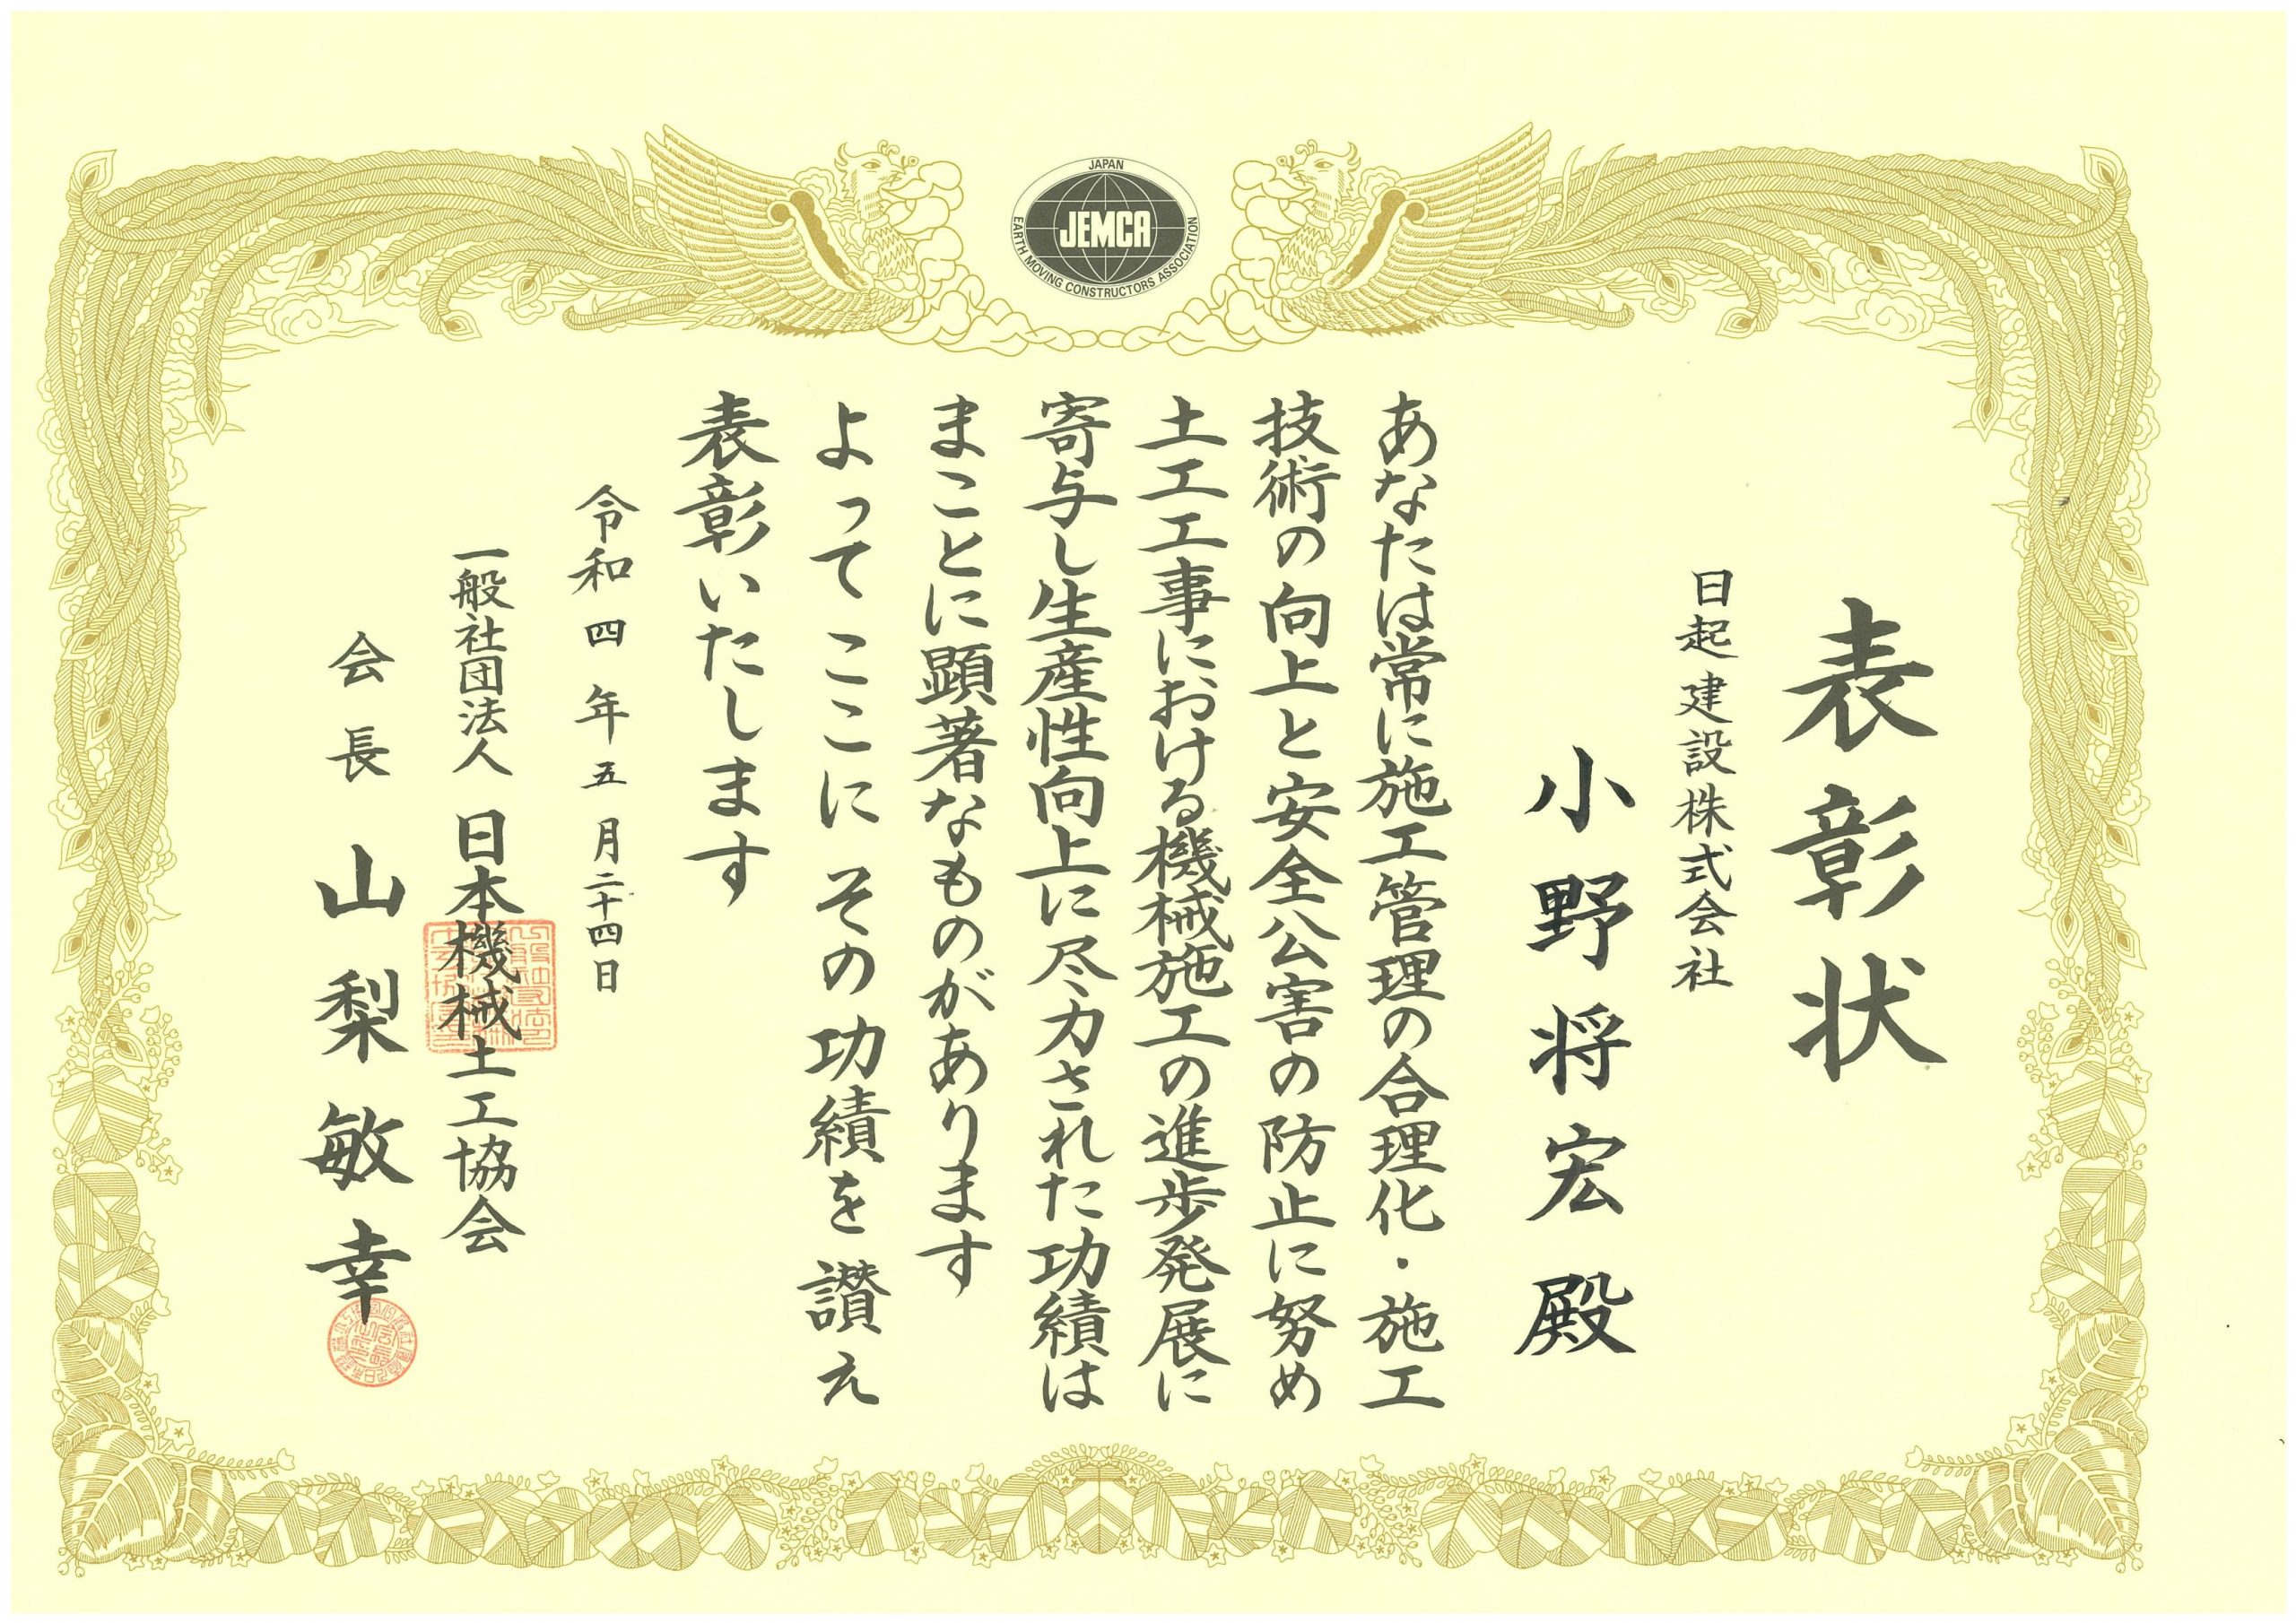 JAPAN
JEMCA
EARTH MOVING CONSTRUCTORS ASSOCIATION
表彰状
日起建設株式会社
小野将宏殿
あなたは常に施工管理の合理化・施工
技術の向上と安全公害の防止に努め
土工工事における機械施工の進歩発展に
寄与し生産性向上に尽力された功績は
まことに顕著なものがあります
よってここにその功績を讃え
表彰いたします
令和四年五月二十四日
一般社団法人 日本機械土工協会
会長 山梨敏幸